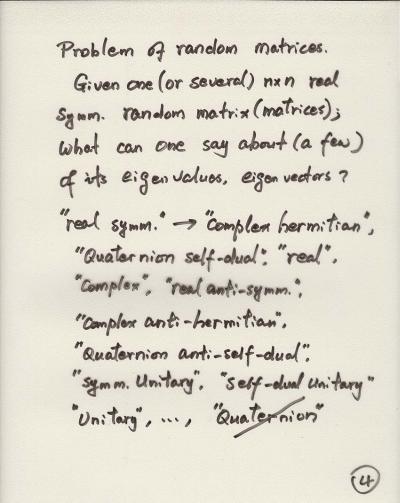 Problem of random matrices.
Given one (or several) n×n real
symm. random matrix (matrices);
what can one say about (a few)
of its eigenvalues, eigenvectors?
"real symm." → "Complex hermitian",
"Quaternion self-dual", "real",
"Complex", "real anti-symm.",
"Complex anti-hermitian",
"Quaternion anti-self-dual",
"Symm. Unitary", "Self-dual Unitary"
"Unitary", ..., "Quaternion"
4